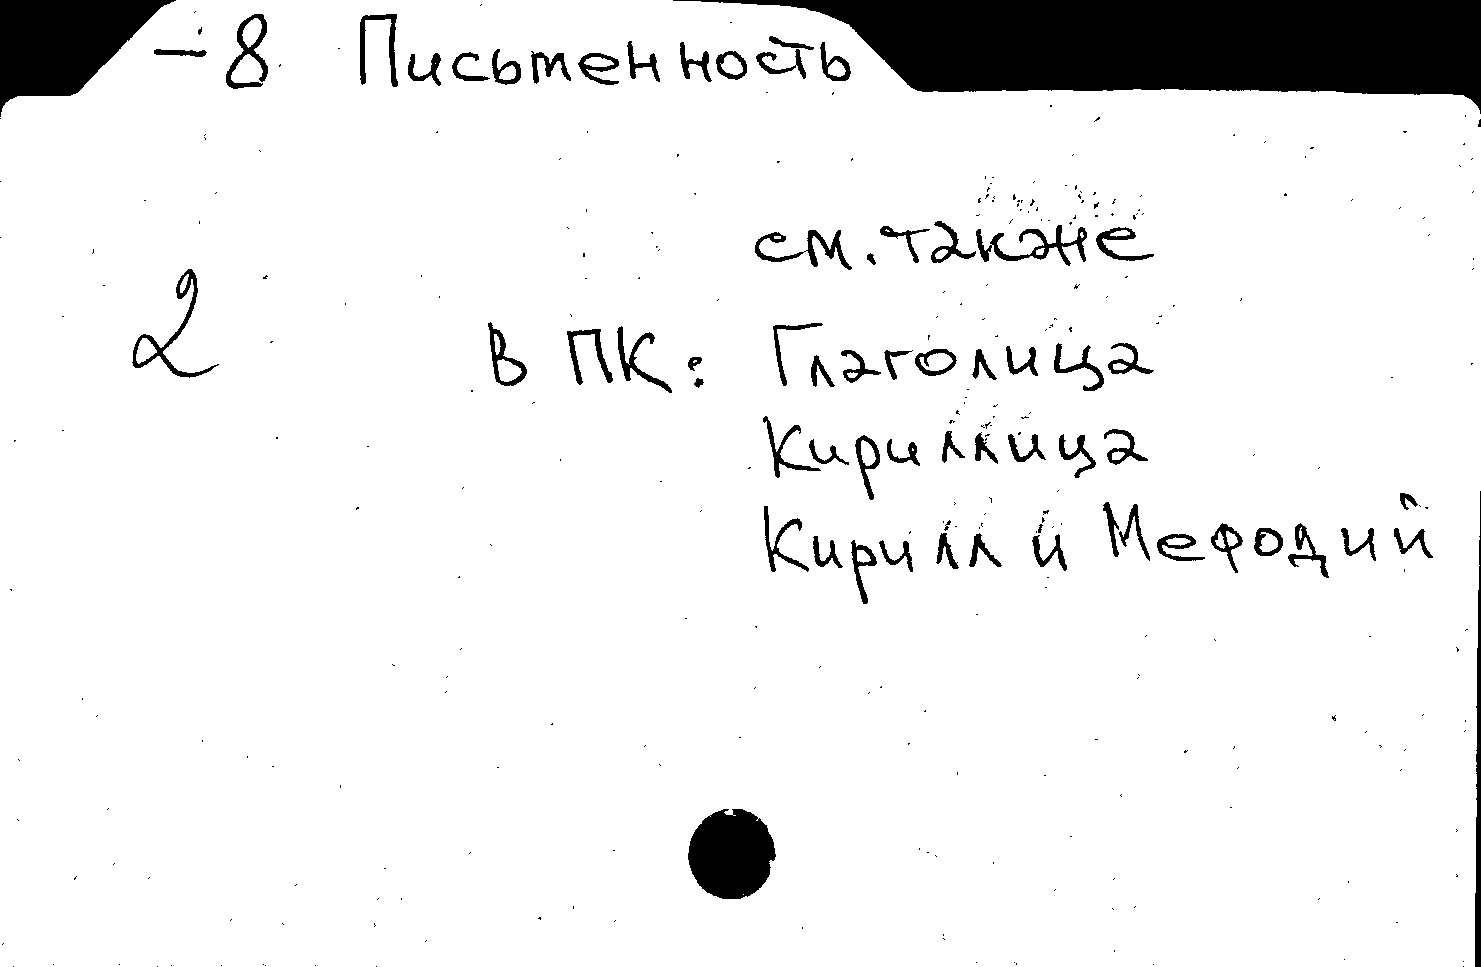 -8 Письменность
см. также
2
в ПК: Глаголица
Кириллица
Кирилл и Мефодий